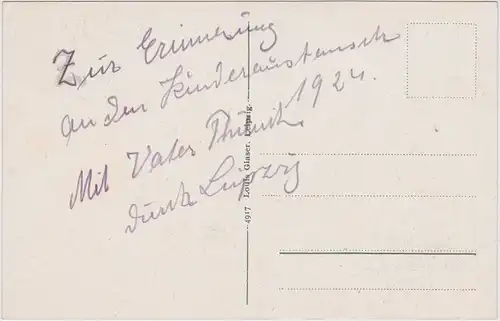 Zur Erinnerung
an den Kinderaustausch
1924.
Mit Vater
durch Leipzig
4917 Louis Glaser, Leipzig.